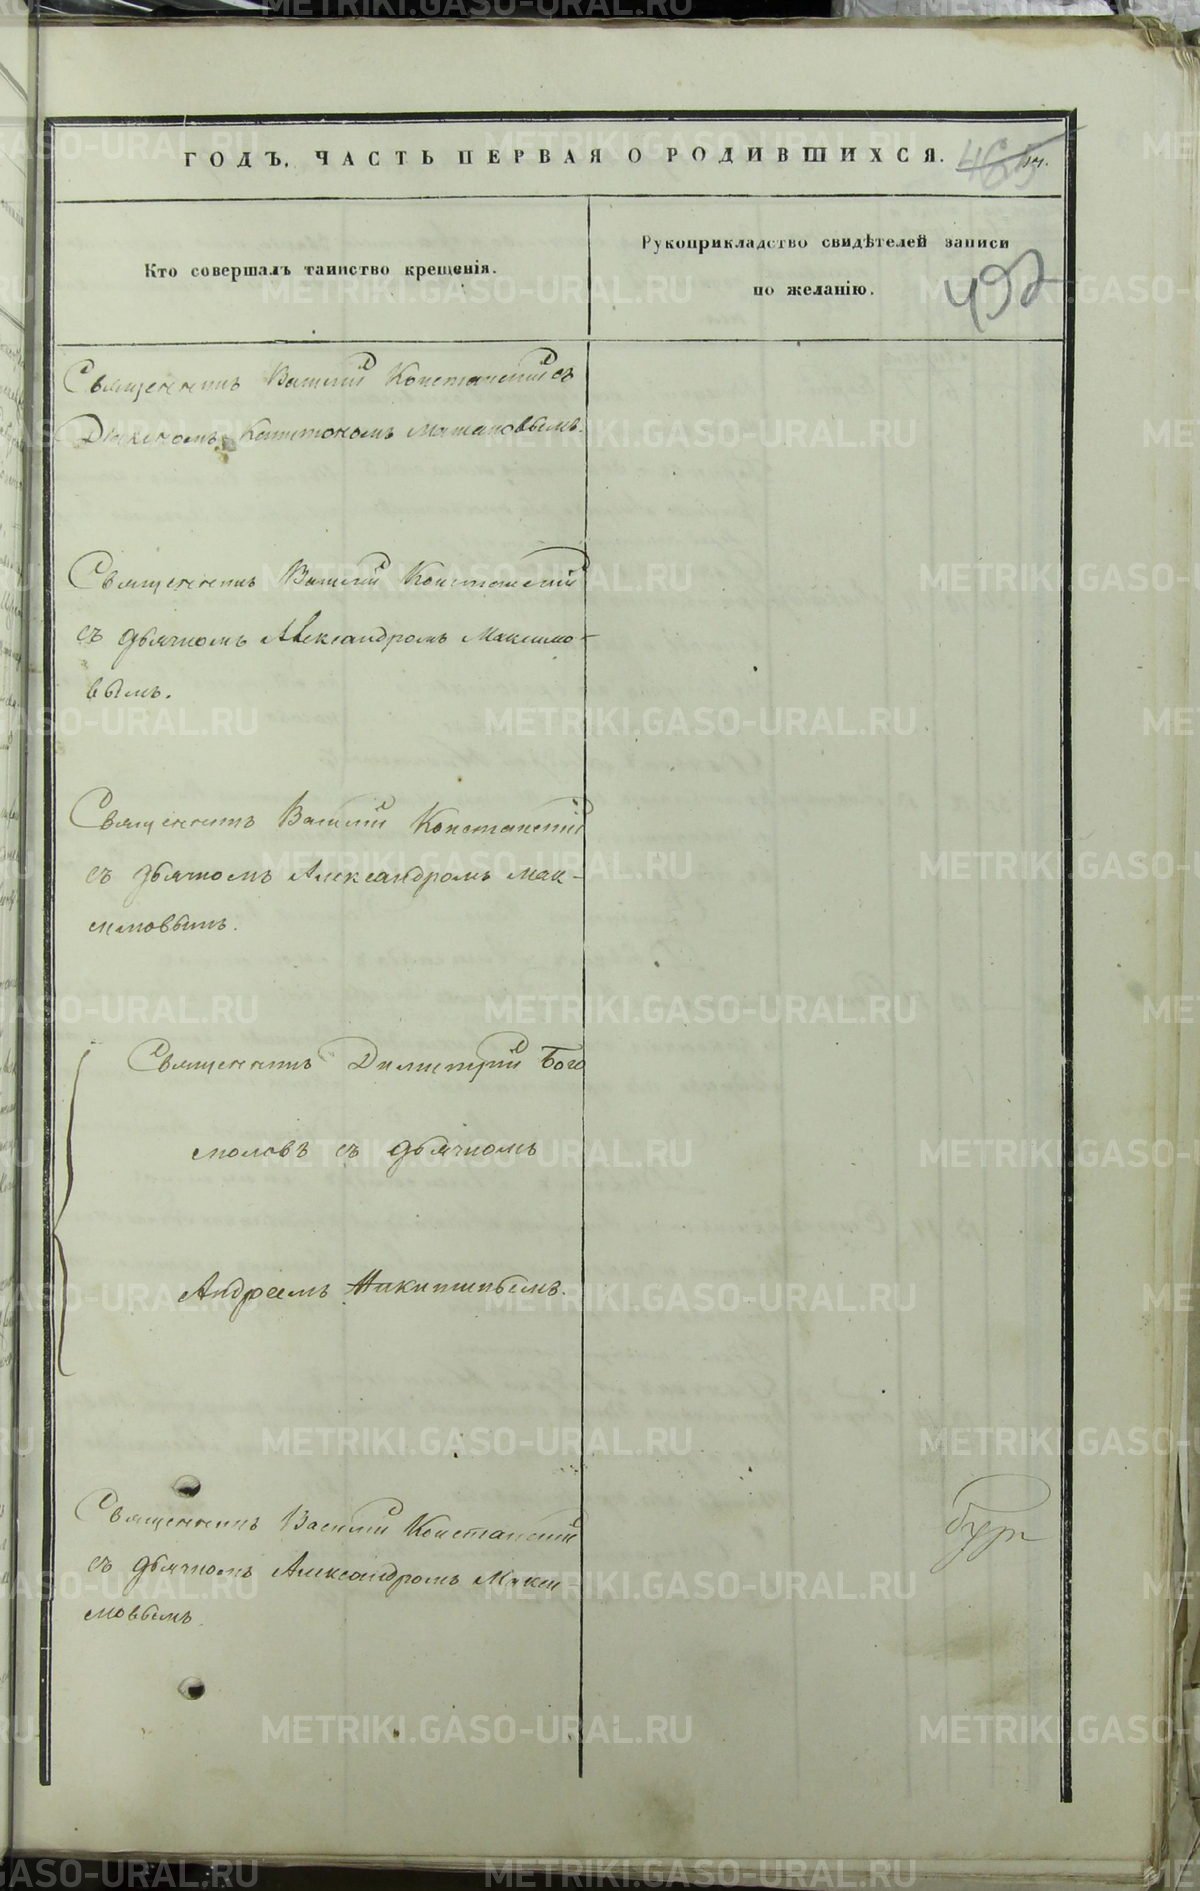 ГОДЪ. ЧАСТЬ ПЕРВАЯ О РОДИВШИХСЯ.
492
Кто совершалъ таинство крещенія.
Рукоприкладство свидѣтелей записи
по желанію.
Священникъ Василій Константскій съ
Діакономъ Капитономъ
Священникъ Василій Константскій
съ дьячкомъ Александромъ Максимо-
вымъ.
Священникъ Василій Константскій
съ дьячкомъ Александромъ Мак-
симовымъ.
Священникъ Димитрій Бого
моловъ съ дьячкомъ
Андреемъ Никитинымъ.
Священникъ Василій Константскій
съ дьячкомъ Александромъ Макси-
мовымъ
METRIKI.GASO-URAL.RU